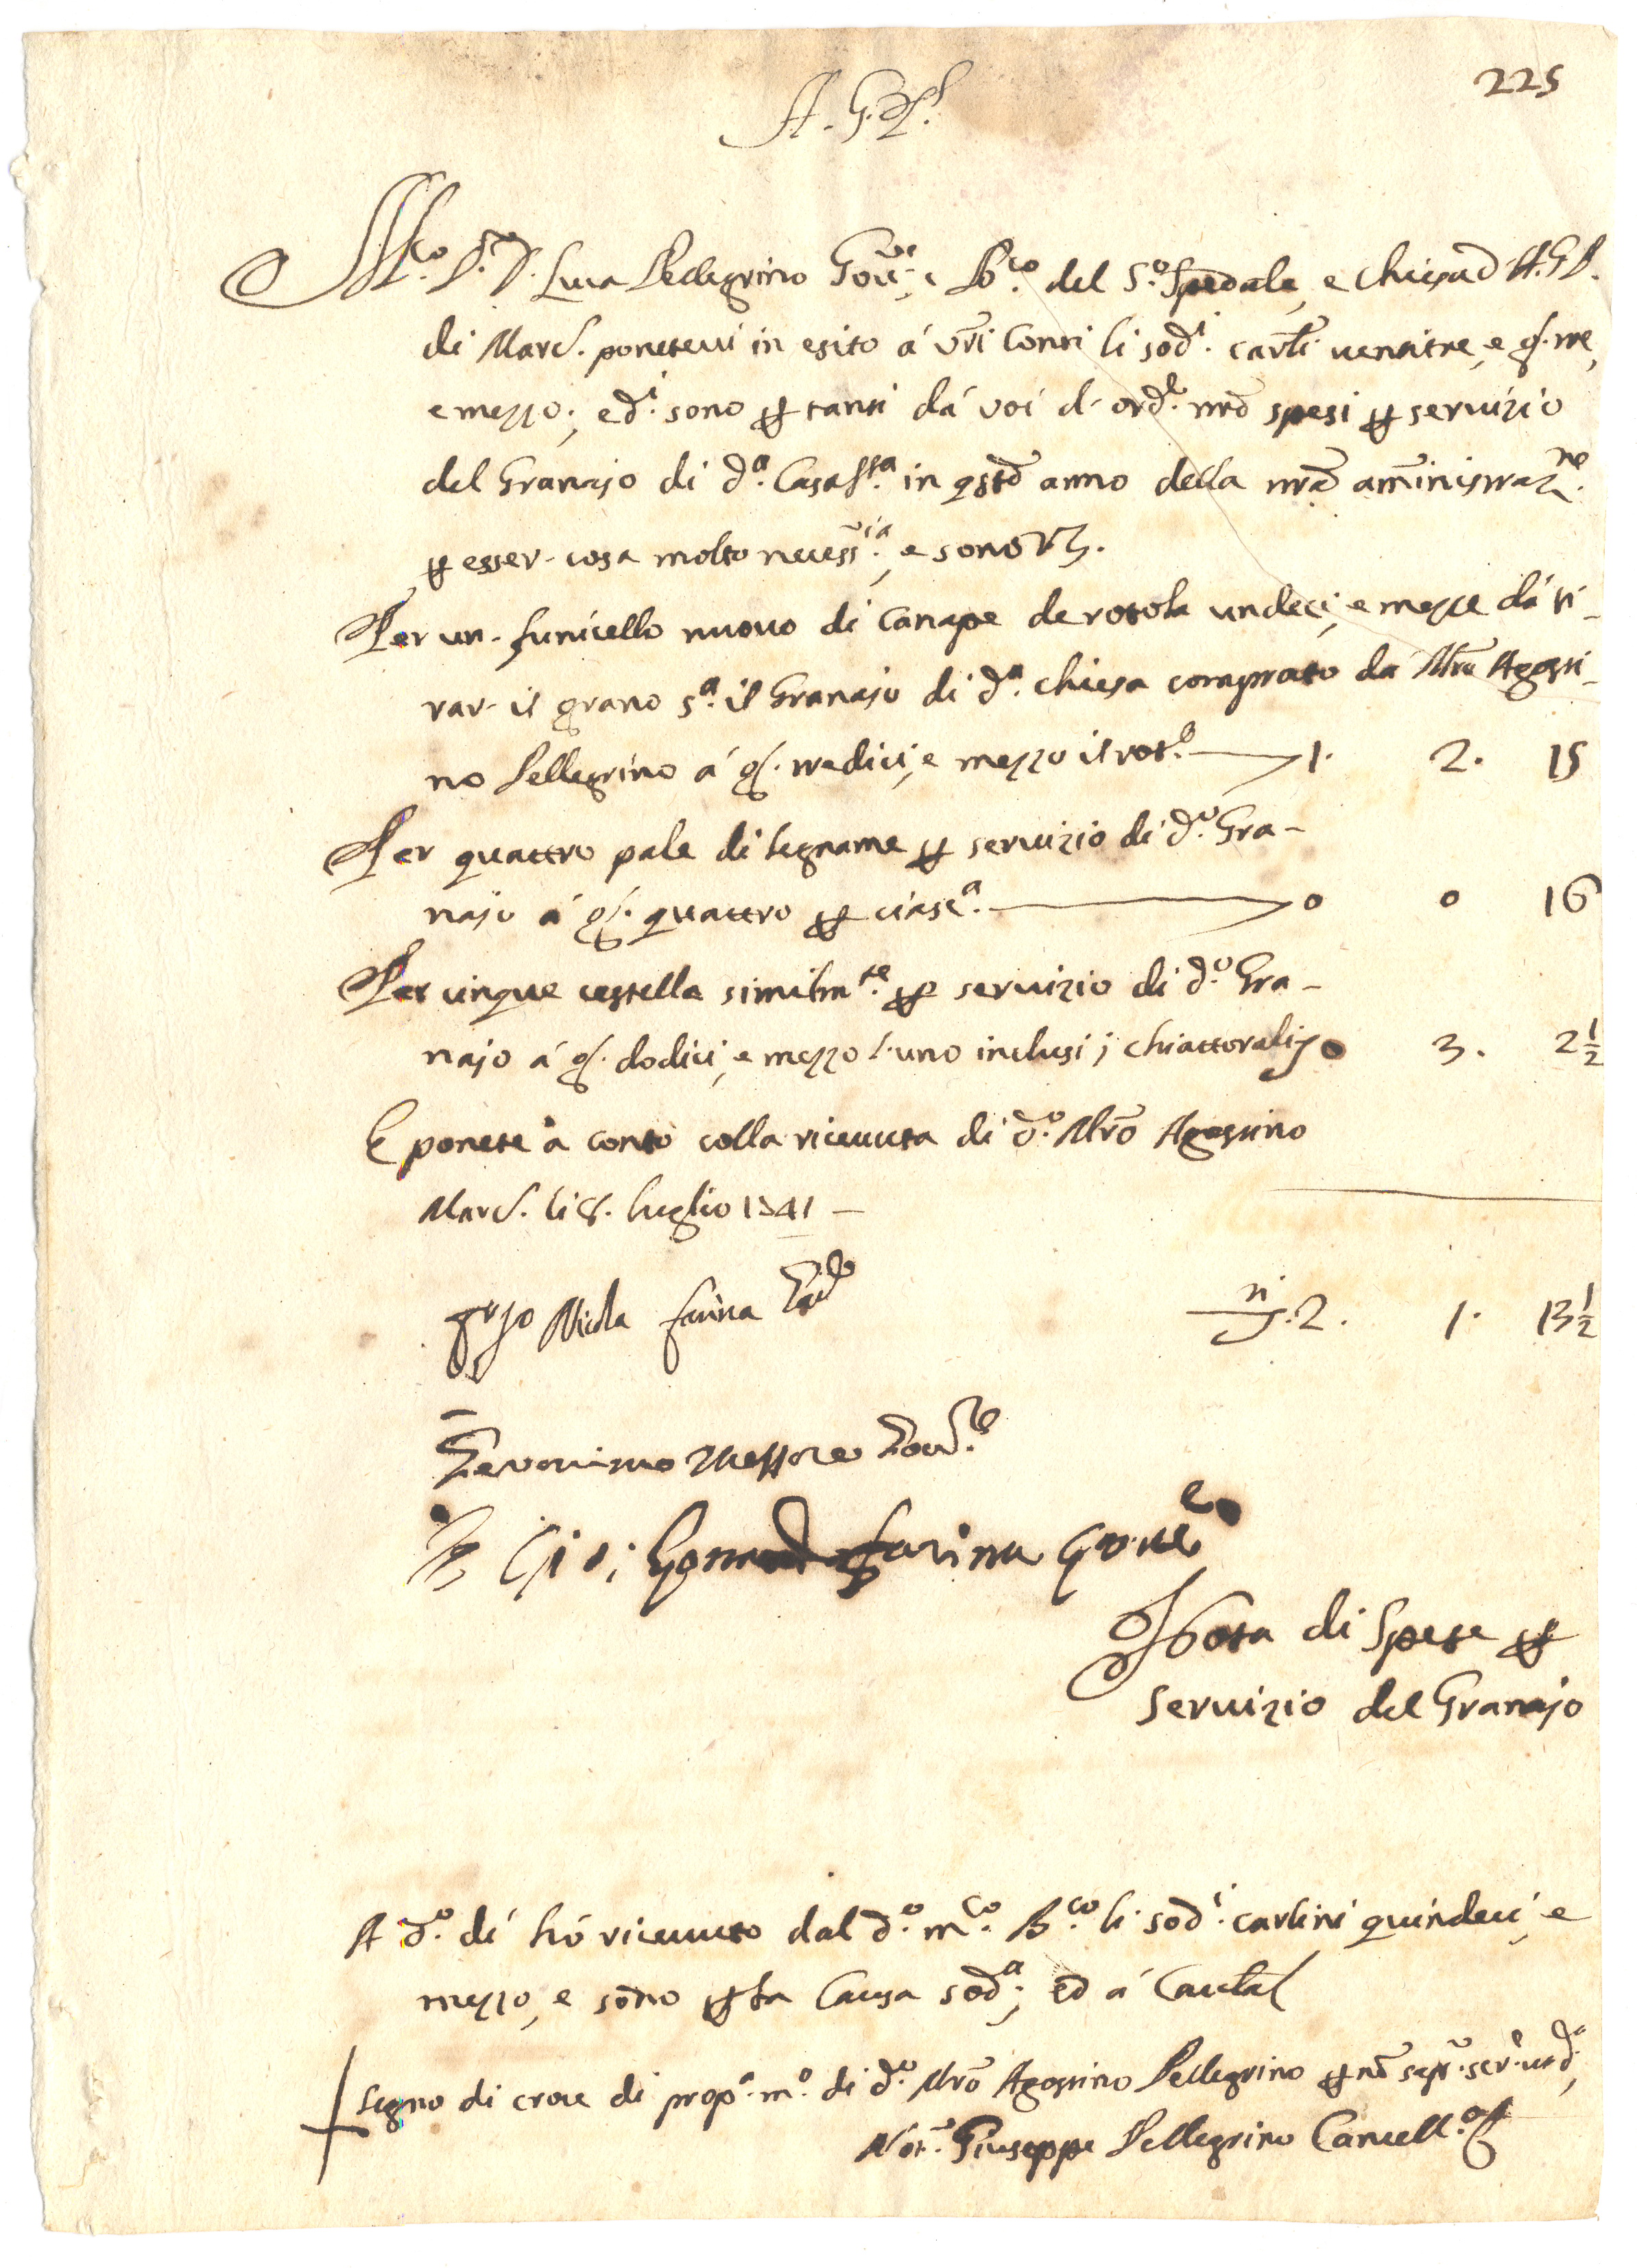 225
A. G. P.
M.co S.r D. Luca Pellegrino Gov.r, e B.co del S.o Spedale, e Chiesa d' A.G.P.
di Marc.l ponetevi in esito á vři Conti li sod.i carlī ventitre, e g.l tre,
e mezzo; e d.i sono p tanti dá voi d'ord.e nřo spesi p servizio
del Granajo di d.a Casa S.ta in q̃sto anno della nřa am̃inistraz.ne
p esser cosa molto necess.ia, e sono Vz.
Per un funicello nuovo di Canape de rotola undeci, e mezze dá ti-
rar il grano s.a il Granajo di d.a Chiesa comprato da Mřo Agosti-
no Pellegrino á g.l tredici, e mezzo il rot.o 1. 2. 15
Per quattro pale di legname p servizio di d.o Gra-
najo á g.l quattro p ciasc.a 0 0 16
Per cinque cestella similm.te p servizio di d.o Gra-
najo á g.l dodici, e mezzo l'uno inclusi i chiattorali 0 3. 2½
E ponete á conto colla ricevuta di d.o Mřo Agostino
Marc.l li 8. Luglio 1741 —
Nicola farina
2. 1. 13½
Geronimo Messore Gov.re
farina Gove
Nota di Spese p
Servizio del Granajo
A d.o dí hó ricevuto dal d.o m.co B.co li sod.i carlini quindeci, e
mezzo, e sono p la Causa sod.a; ed á Cautel
Segno di croce di prop.a m.o di d.o Mřo Agostino Pellegrino p nõ sap.r scriv.e
Not.r Giuseppe Pellegrino Cancell.o